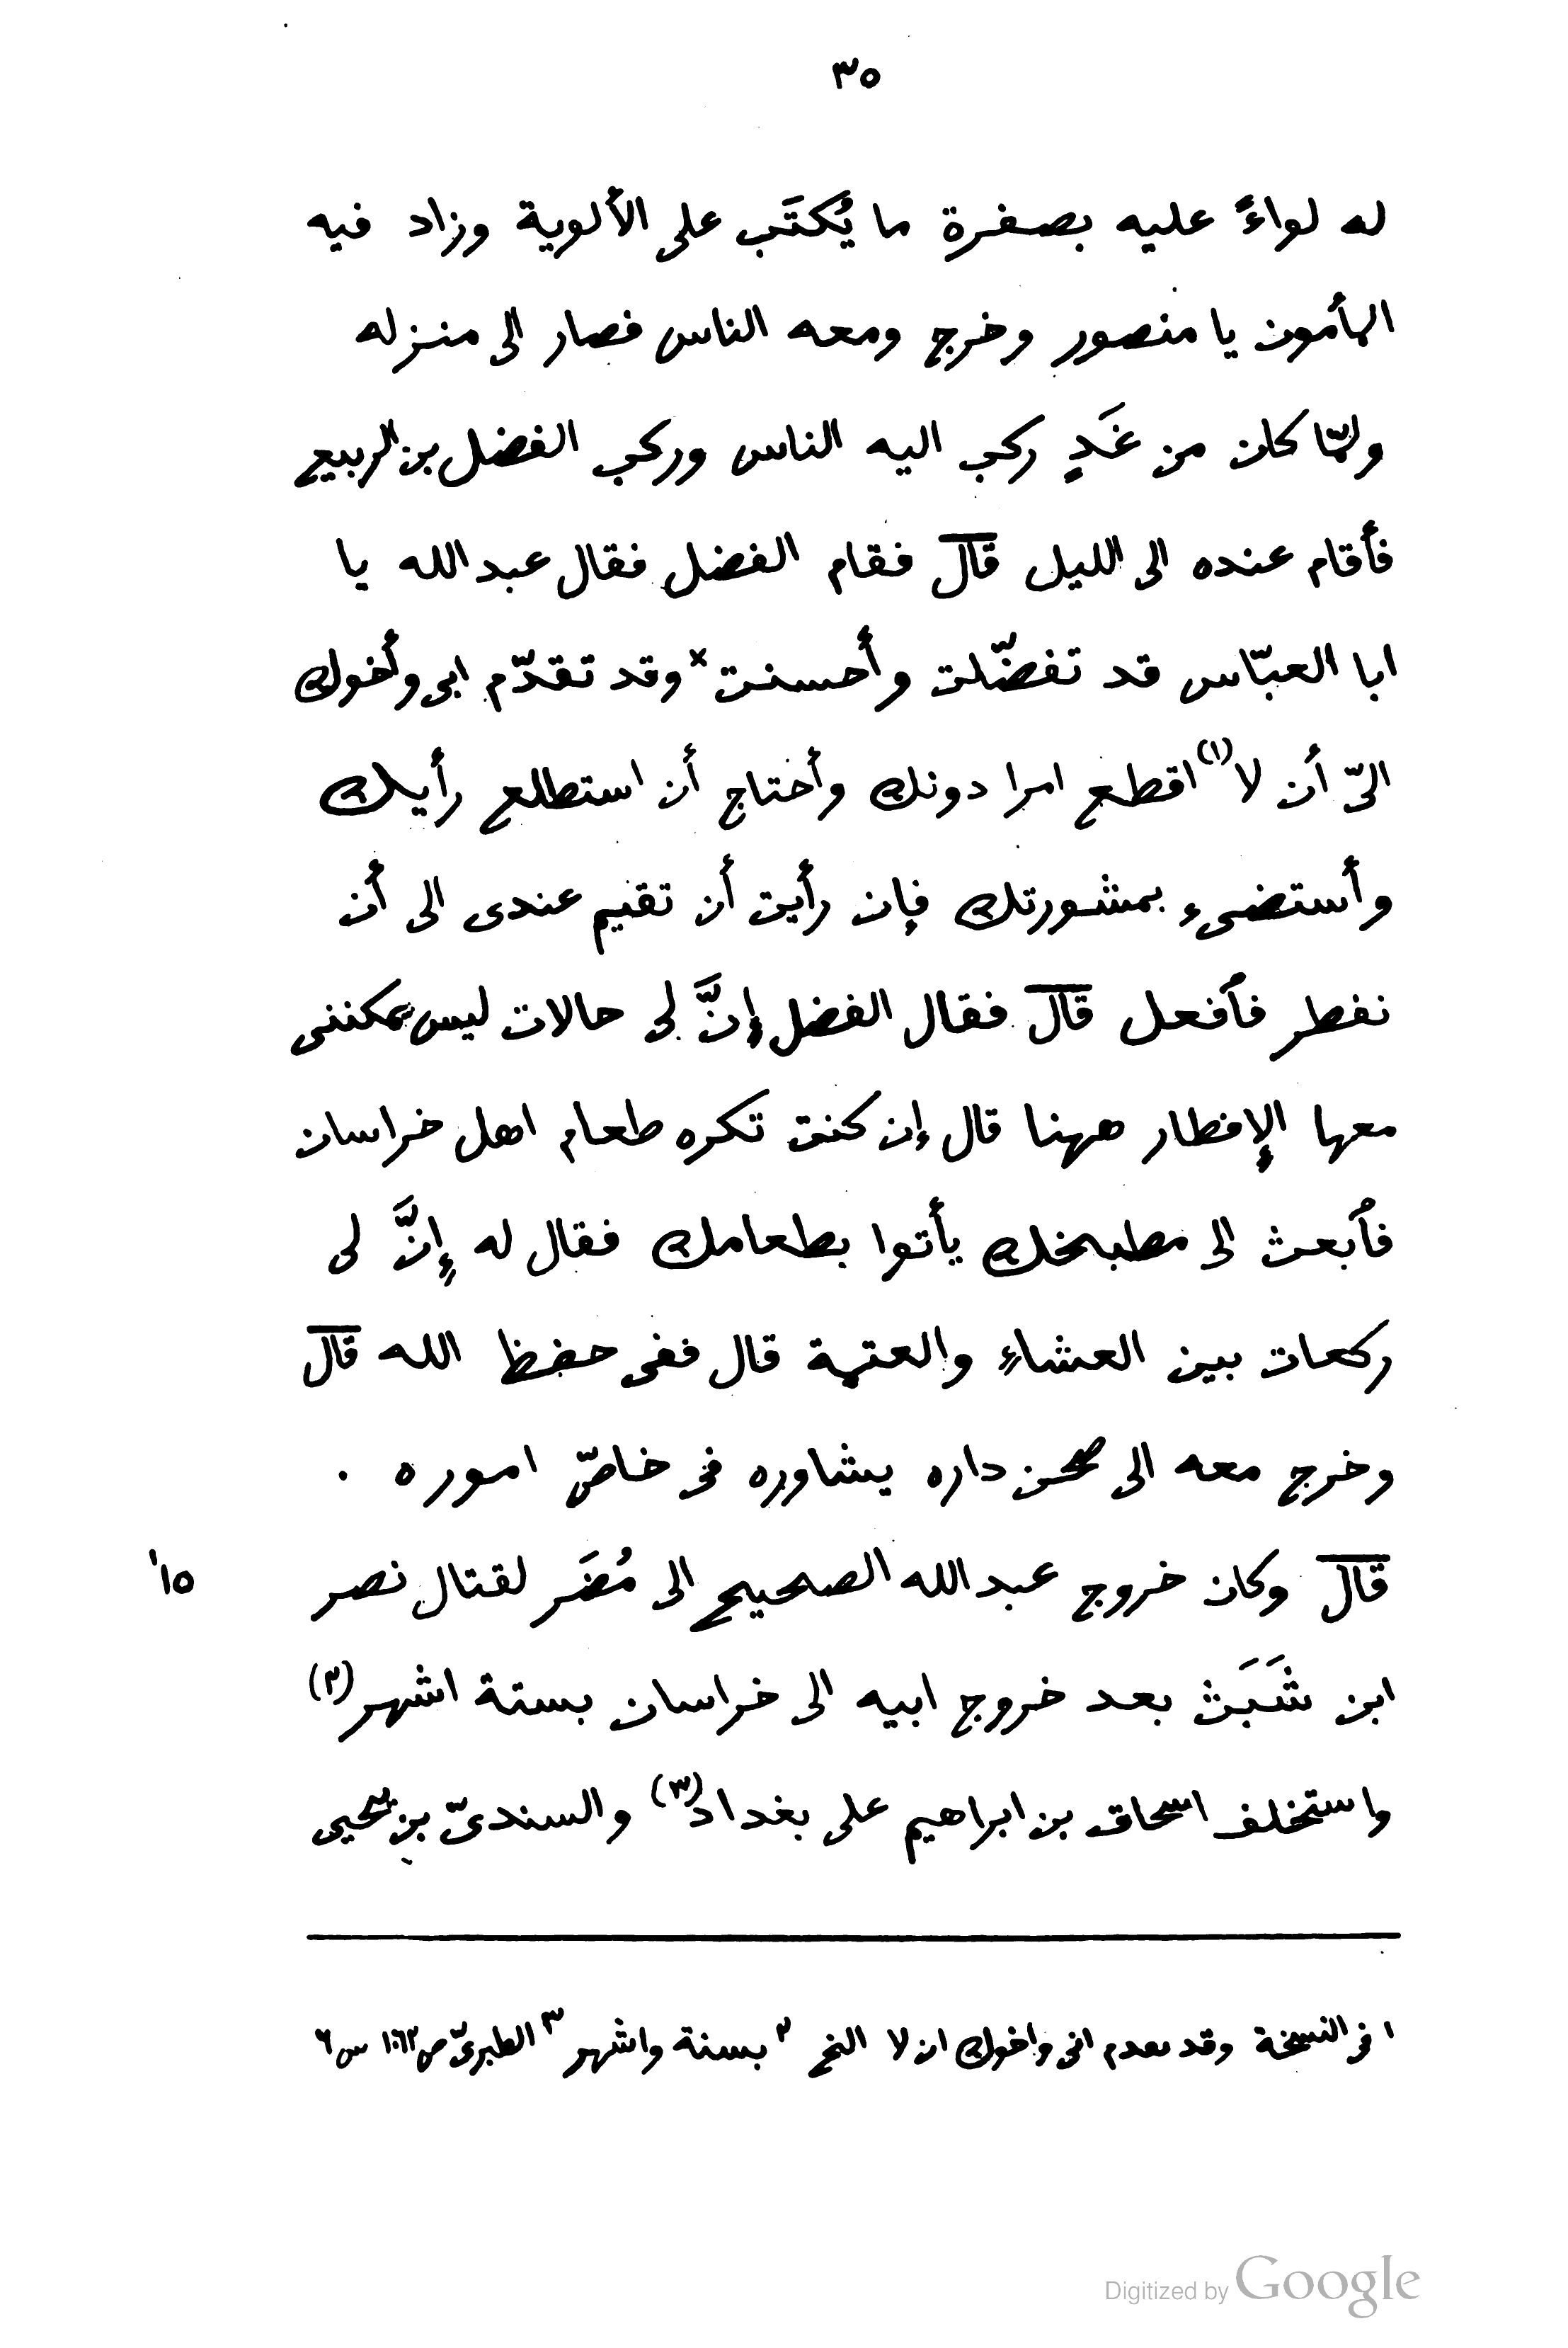 ٣٥
له لواءً عليه بصفرة ما يُكتَب على الألوية وزاد فيه
المأمون يا منصور وخرج ومعه الناس فصار الى منزله
ولمّا كان من غَدٍ ركب اليه الناس وركب الفضل بن الربيع
فأقام عنده الى الليل قال فقام الفضل فقال عبد الله يا
ابا العبّاس قد تفضّلت وأحسنت × وقد تقدّم ابى وأخوك
الىّ أن لا (١) اقطع امرا دونك وأحتاج أن استطلع رأيك
وأستضىء بمشورتك فإن رأيت أن تقيم عندى الى أن
نفطر فأفعل قال فقال الفضل إنَّ لى حالات ليس يمكننى
معها الإفطار ههنا قال إن كنت تكره طعام اهل خراسان
فأبعث الى مطبخك يأتوا بطعامك فقال له إنَّ لى
ركعات بين العشاء والعتمة قال ففى حفظ الله قال
وخرج معه الى صحن داره يشاوره فى خاصّ اموره .
قال وكان خروج عبد الله الصحيح الى مُضَر لقتال نصر
١٥
ابن شَبَث بعد خروج ابيه الى خراسان بستة اشهر (٢)
واستخلف اسحاق بن ابراهيم على بغداد (٣) والسندىّ بن يحيى
١ فى النسخة وقد معدم انى واخوك ان لا النح ٢ بسنة واشهر ٣ الطبرىّ ص ١٠٦٢ س ٦
Digitized by Google